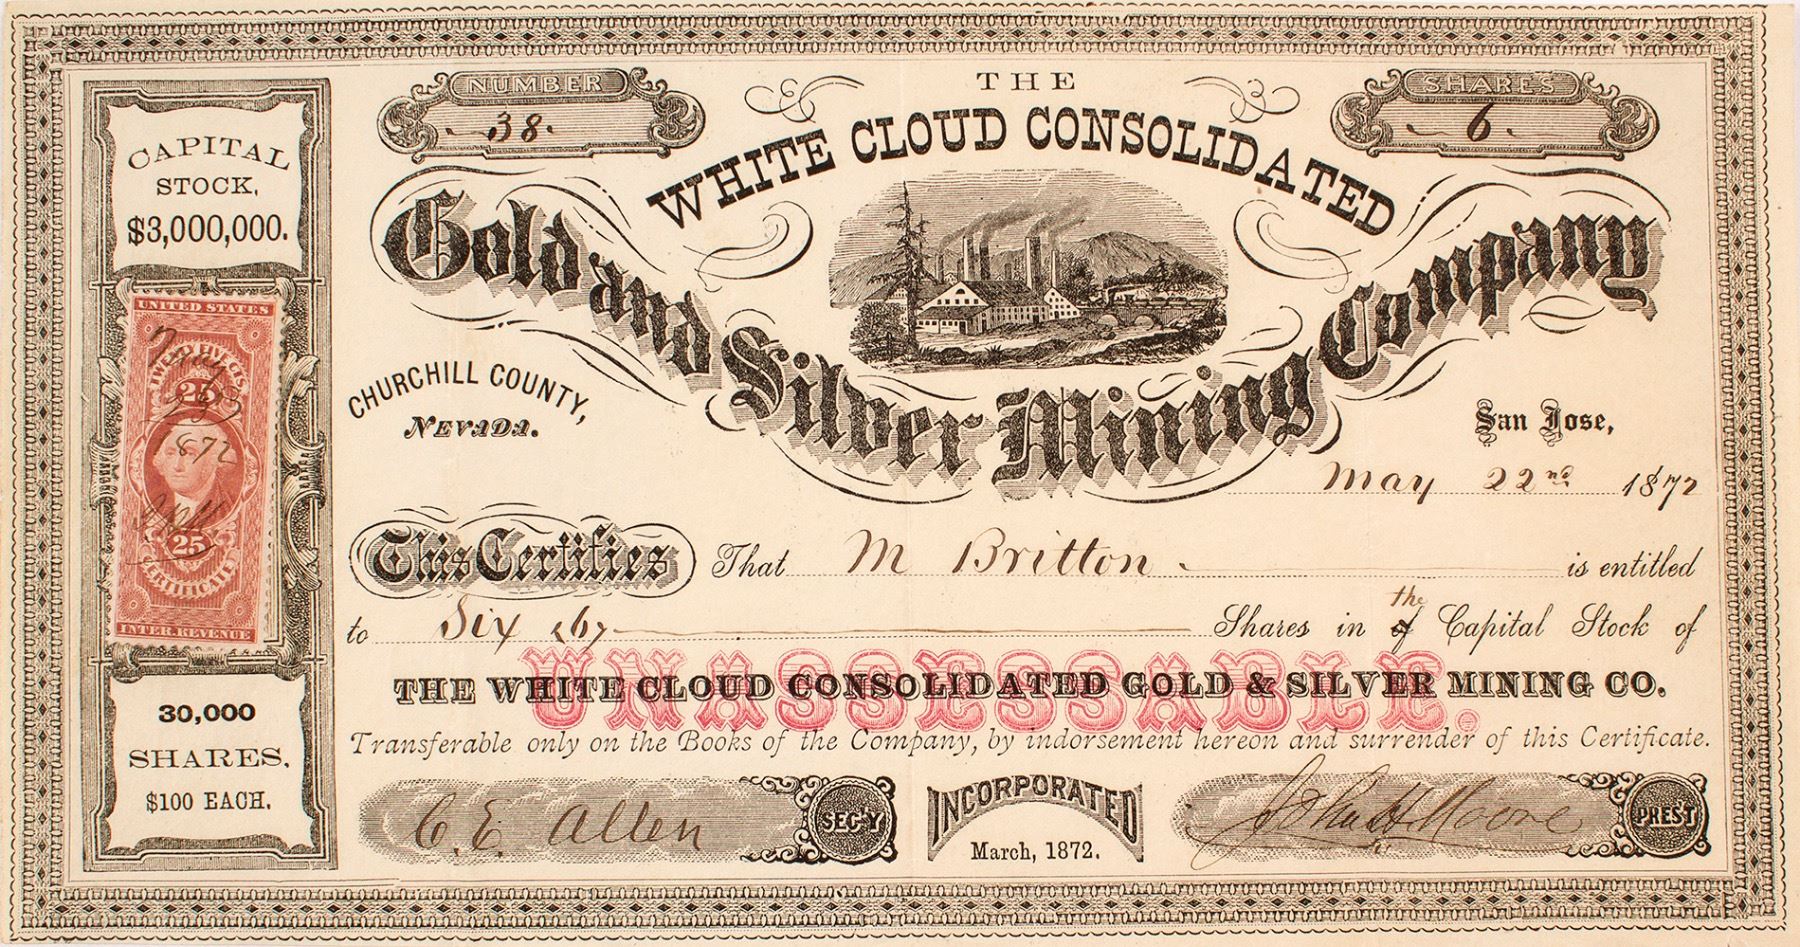 NUMBER
38.
THE
SHARES
6.
WHITE CLOUD CONSOLIDATED
Gold and Silver Mining Company
CAPITAL
STOCK,
$3,000,000.
UNITED STATES
TWENTY FIVE CTS.
25
May
1872
25
CERTIFICATE
INTER. REVENUE
30,000
SHARES,
$100 EACH.
CHURCHILL COUNTY,
NEVADA.
San Jose,
May 22nd 1872
This Certifies That M Britton is entitled
to Six (6) Shares in of the Capital Stock of
UNASSESSABLE.
THE WHITE CLOUD CONSOLIDATED GOLD & SILVER MINING CO.
Transferable only on the Books of the Company, by indorsement hereon and surrender of this Certificate.
C. E. Allen SEC'Y
INCORPORATED
March, 1872.
John H. Moore PREST